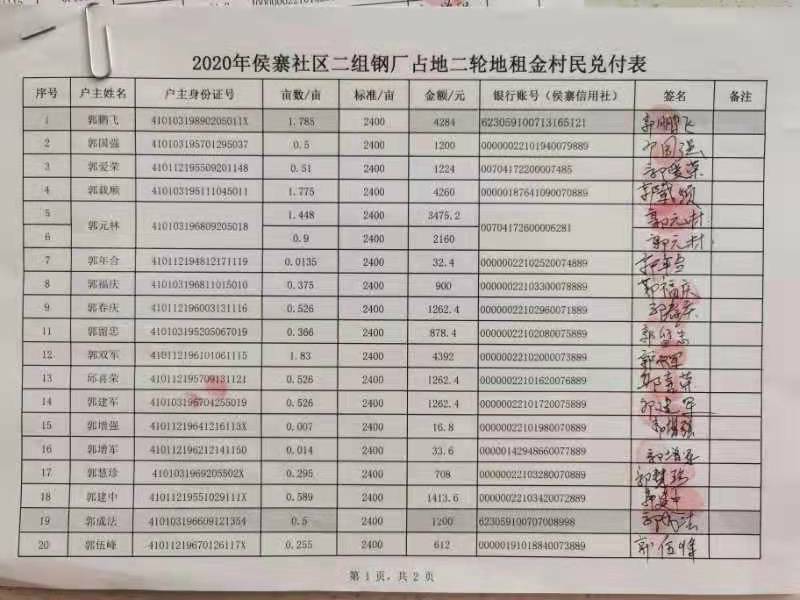 2020年侯寨社区二组钢厂占地二轮地租金村民兑付表
序号 户主姓名 户主身份证号 亩数/亩 标准/亩 金额/元 银行账号（侯寨信用社） 签名 备注
1 郭鹏飞 41010319890205011X 1.785 2400 4284 623059100713165121 郭鹏飞
2 郭国强 410103195701295037 0.5 2400 1200 00000022101940079889 郭国强
3 郭爱荣 410112195509201148 0.51 2400 1224 00704172200007485 郭爱荣
4 郭载顺 410103195111045011 1.775 2400 4260 00000187641090070889
5 郭元林 410103196809205018 1.448 2400 3475.2 00704172600006281 郭元林
6 0.9 2400 2160 郭元林
7 郭年合 410112194812171119 0.0135 2400 32.4 00000022102520074889 郭年合
8 郭福庆 410103196811015010 0.375 2400 900 00000022103300078889 郭福庆
9 郭春庆 410112196003131116 0.526 2400 1262.4 00000022102960071889 郭春庆
11 郭留忠 410103195205067019 0.366 2400 878.4 00000022102080075889 郭留忠
12 郭双军 410112196101061115 1.83 2400 4392 00000022102000073889 郭双军
13 邱喜荣 410112195709131121 0.526 2400 1262.4 00000022101620076889 邱喜荣
14 郭建军 410103196704255019 0.526 2400 1262.4 00000022101720075889 郭建军
15 郭增强 41011219641216113X 0.007 2400 16.8 00000022101980070889 郭增强
16 郭增军 410112196212141150 0.014 2400 33.6 00000142948660077889 郭增军
17 郭慧珍 41010319692055​02X 0.295 2400 708 00000022103280070889 郭慧珍
18 郭建中 41011219551029111X 0.589 2400 1413.6 00000022103420072889 郭建中
19 郭成法 410103196609121354 0.5 2400 1200 623059100707008998 郭成法
20 郭伍峰 41011219670126117X 0.255 2400 612 00000191018840073889 郭伍峰
第 1 页，共 2 页